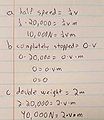 a half speed = ½v
½ · 20,000 = ½vm
10,000N = ½vm
b completely stopped = 0·v
0 · 20,000 = 0·vm
0 = 0·vm
0 = 0
c double weight = 2m
2 · 20,000 = 2·vm
40,000N = 2·vm